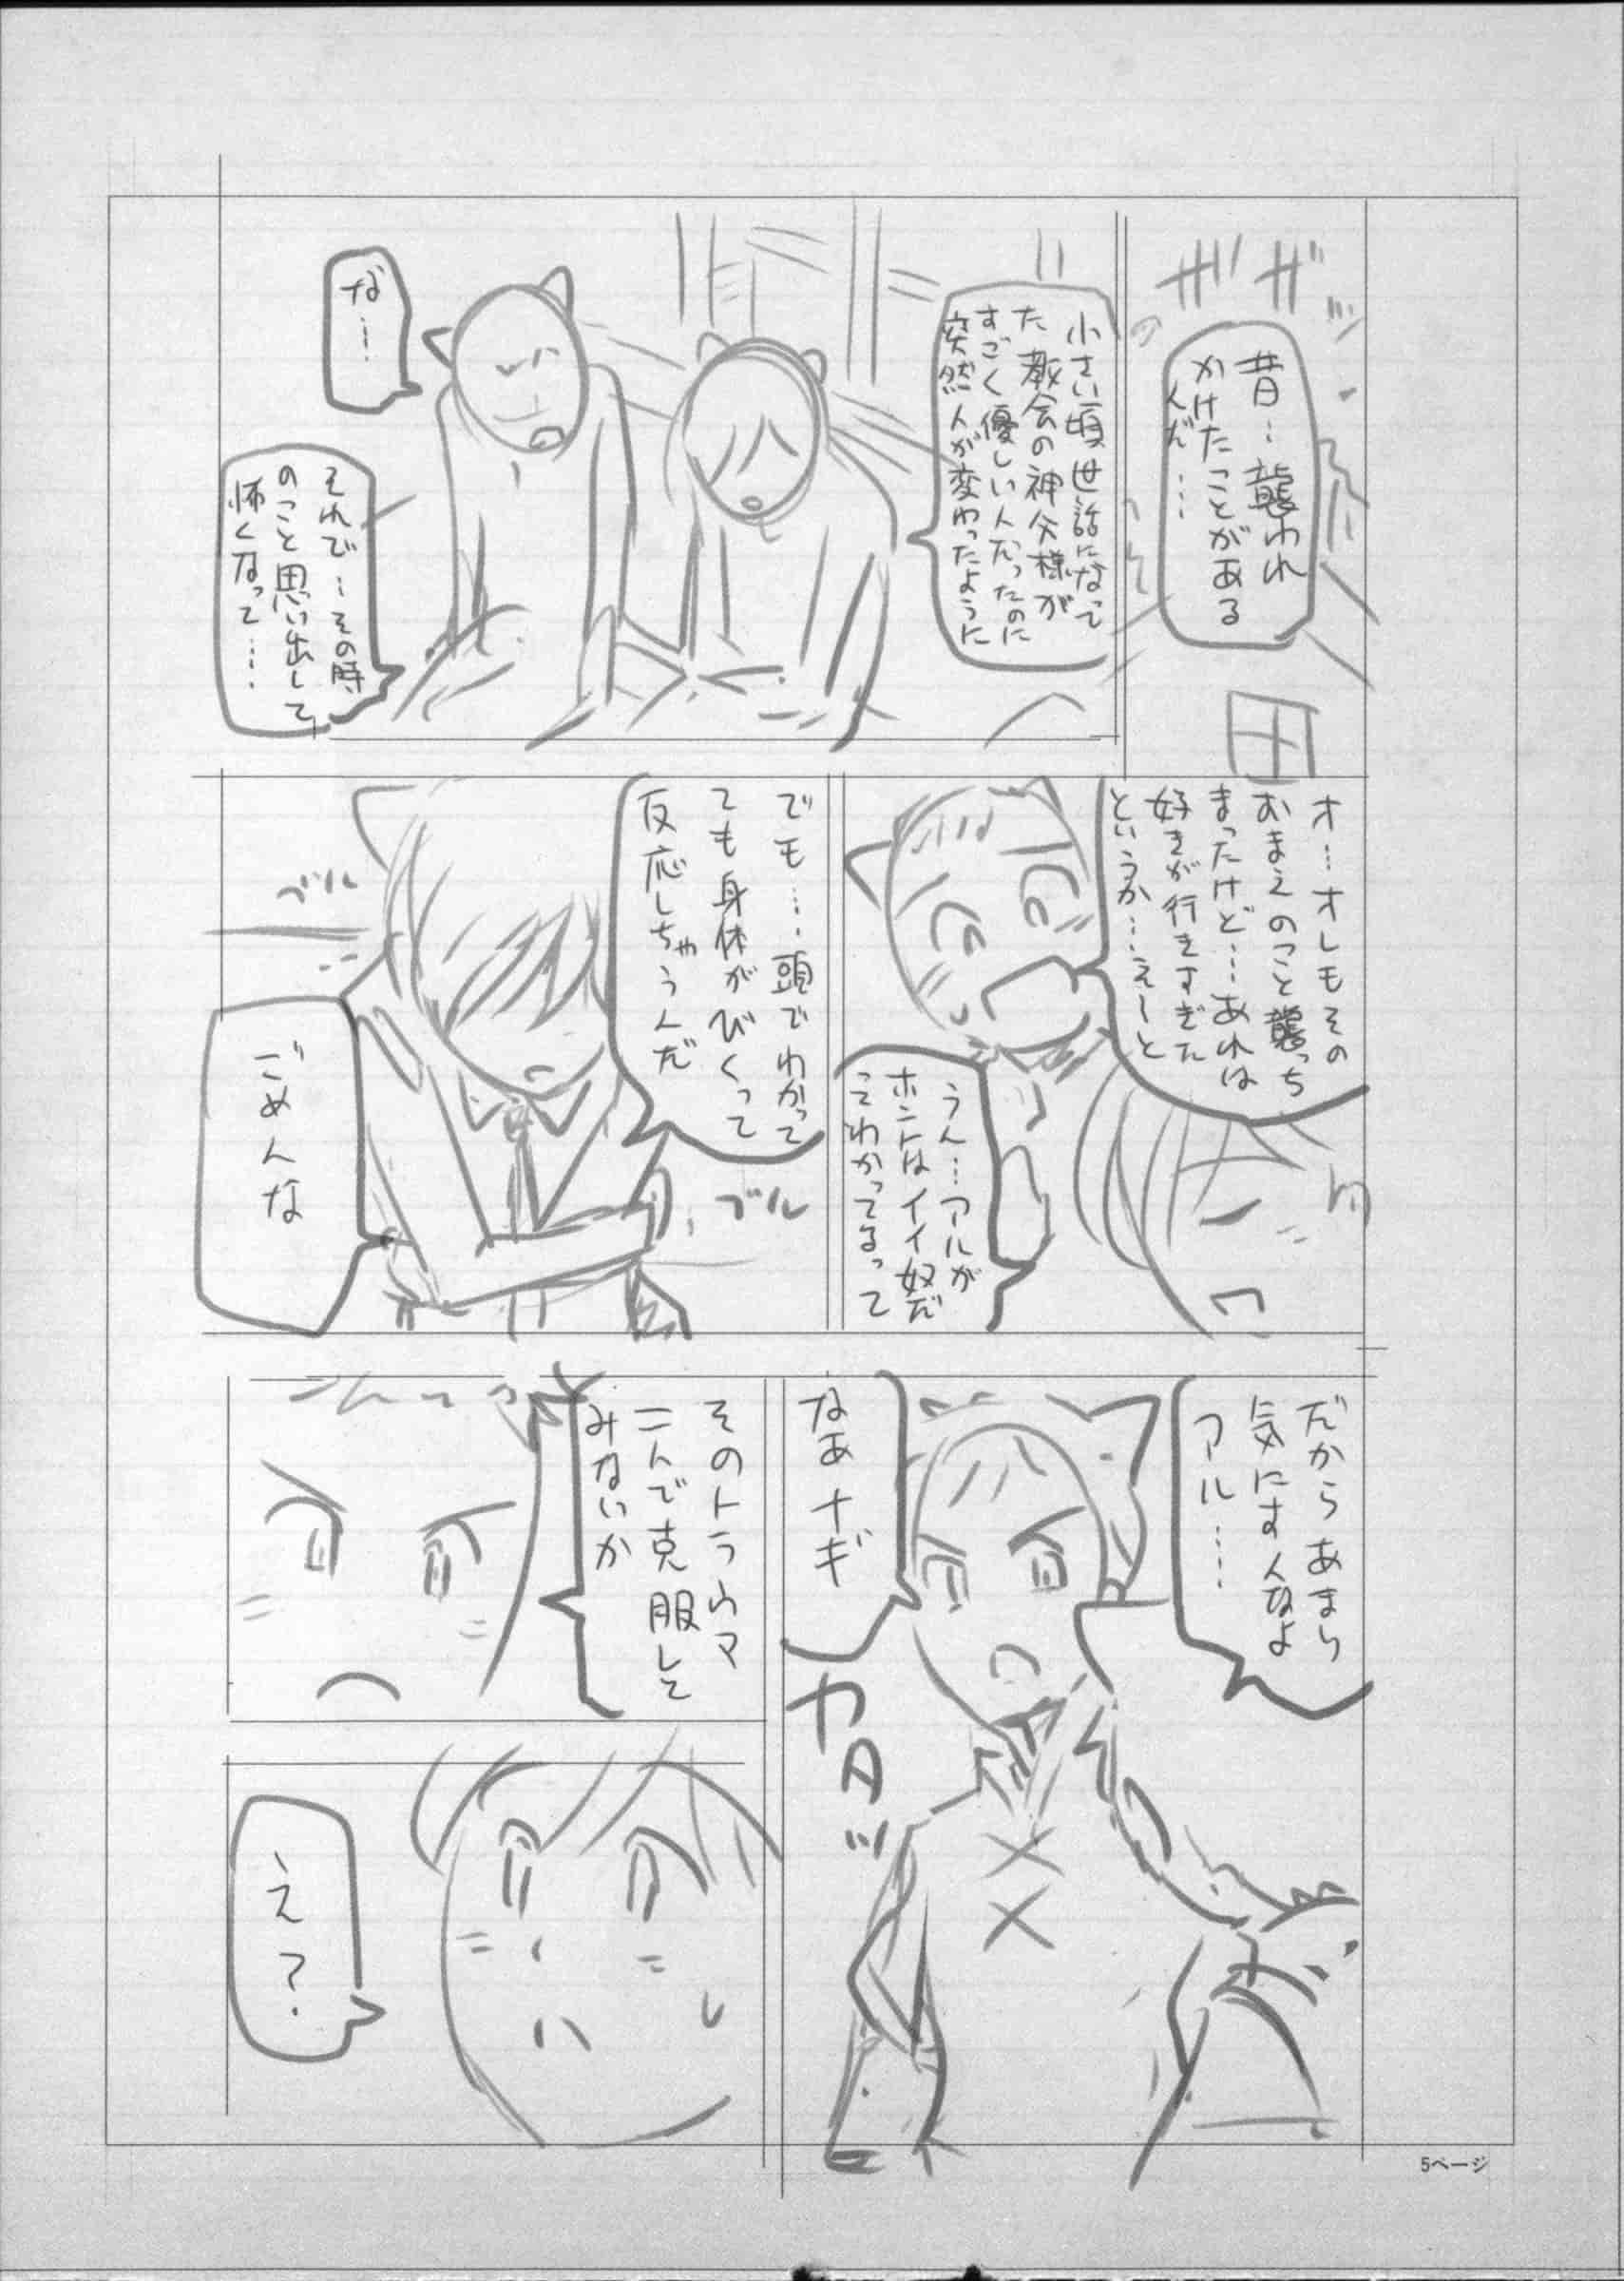 ザザ
昔…襲われ
かけたことがある
んだ……
小さい頃世話になって
た教会の神父様が
すごく優しい人だったのに
突然人が変わったように
な…
それで…その時
のこと思い出して
怖くなって……
オ…オレもその
おまえのこと襲っち
まったけど…あれは
好きが行きすぎた
というか…えーと
うん…アルが
ホントはイイ奴だ
ってわかってるって
でも…頭でわかって
ても身体がびくって
反応しちゃうんだ
ブル
ブル
ごめんな
だからあまり
気にすんなよ
アル……
なあナギ
ガタッ
そのトラウマ
二人で克服して
みないか
え？
5ページ